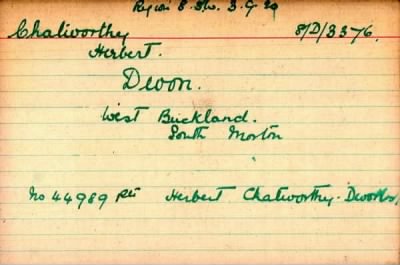 Chatworthy 8/D/3376.
Herbert.
Devon.
West Buckland.
South Morton
No 44989 Pte Herbert Chatworthy - Devons,